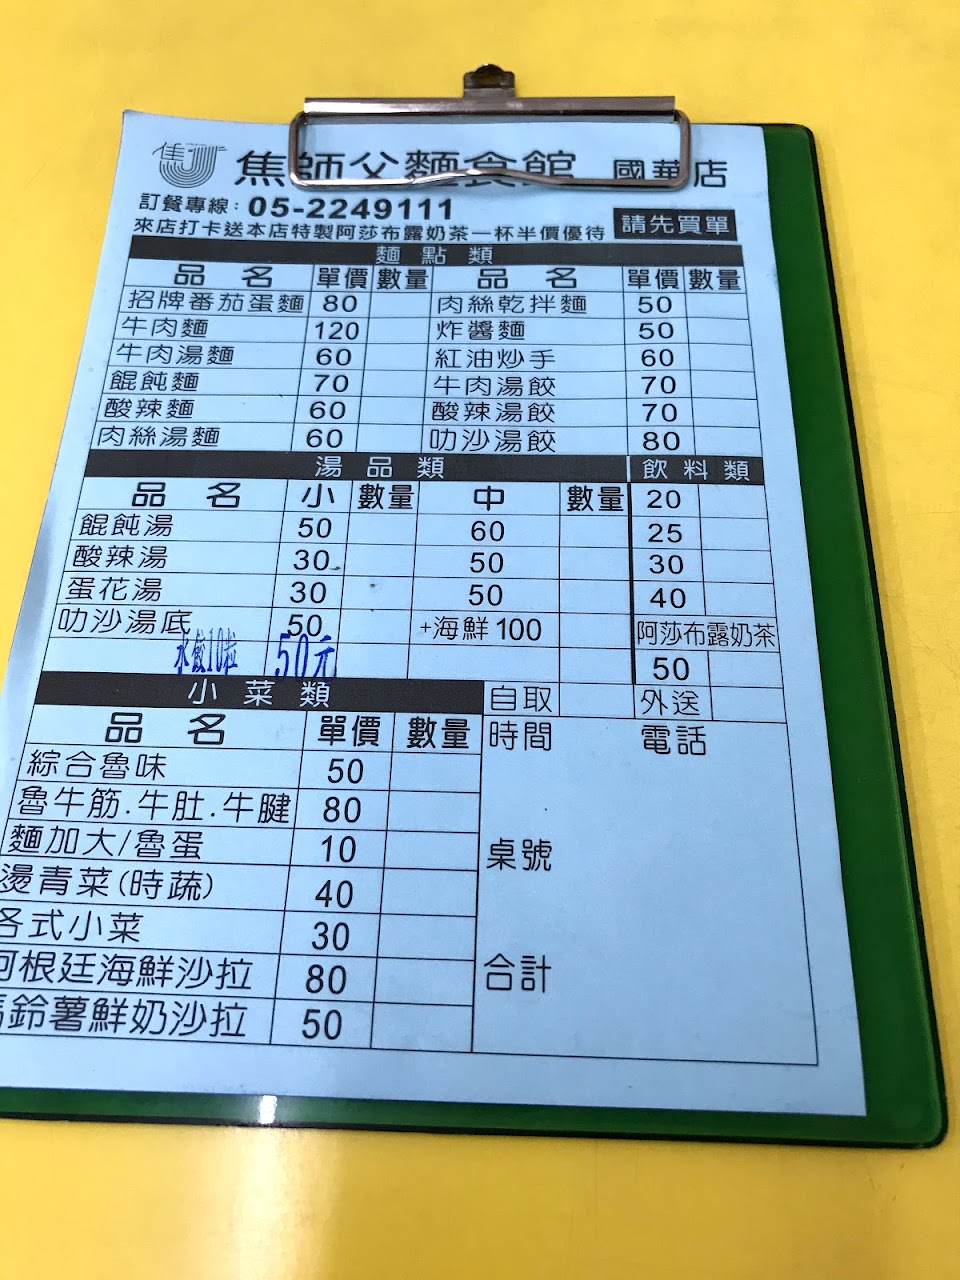 焦 焦師父麵食館 國華店
訂餐專線: 05-2249111
來店打卡送本店特製阿莎布露奶茶一杯半價優待 請先買單
麵點類
品名 單價 數量 品名 單價 數量
招牌番茄蛋麵 80 肉絲乾拌麵 50
牛肉麵 120 炸醬麵 50
牛肉湯麵 60 紅油炒手 60
餛飩麵 70 牛肉湯餃 70
酸辣麵 60 酸辣湯餃 70
肉絲湯麵 60 叻沙湯餃 80
湯品類 飲料類
品名 小 數量 中 數量 20
餛飩湯 50 60 25
酸辣湯 30 50 30
蛋花湯 30 50 40
叻沙湯底 50 +海鮮100 阿莎布露奶茶
水餃10粒 50元 50
小菜類 自取 外送
品名 單價 數量 時間 電話
綜合魯味 50
魯牛筋.牛肚.牛腱 80
麵加大/魯蛋 10 桌號
燙青菜(時蔬) 40
各式小菜 30
阿根廷海鮮沙拉 80 合計
馬鈴薯鮮奶沙拉 50